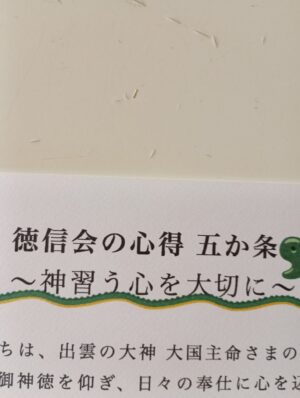 徳信会の心得 五か条
～神習う心を大切に～
ちは、出雲の大神 大国主命さまの
御神徳を仰ぎ、日々の奉仕に心を